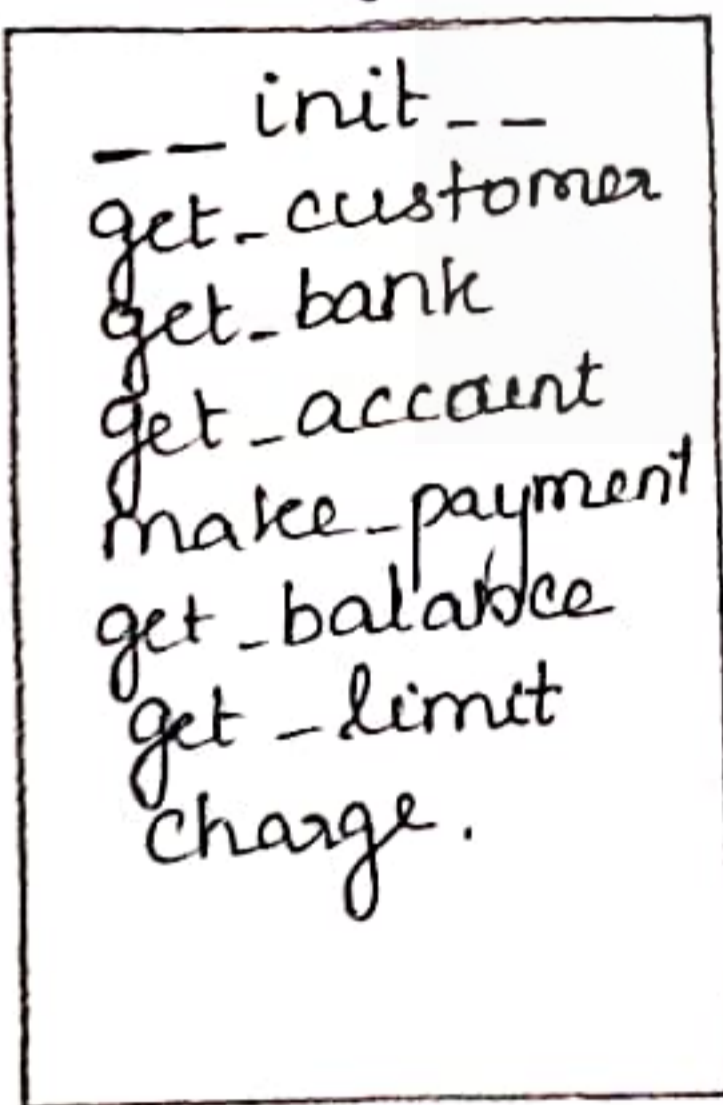 __init__
get_customer
get_bank
get_account
make_payment
get_balance
get_limit
charge.